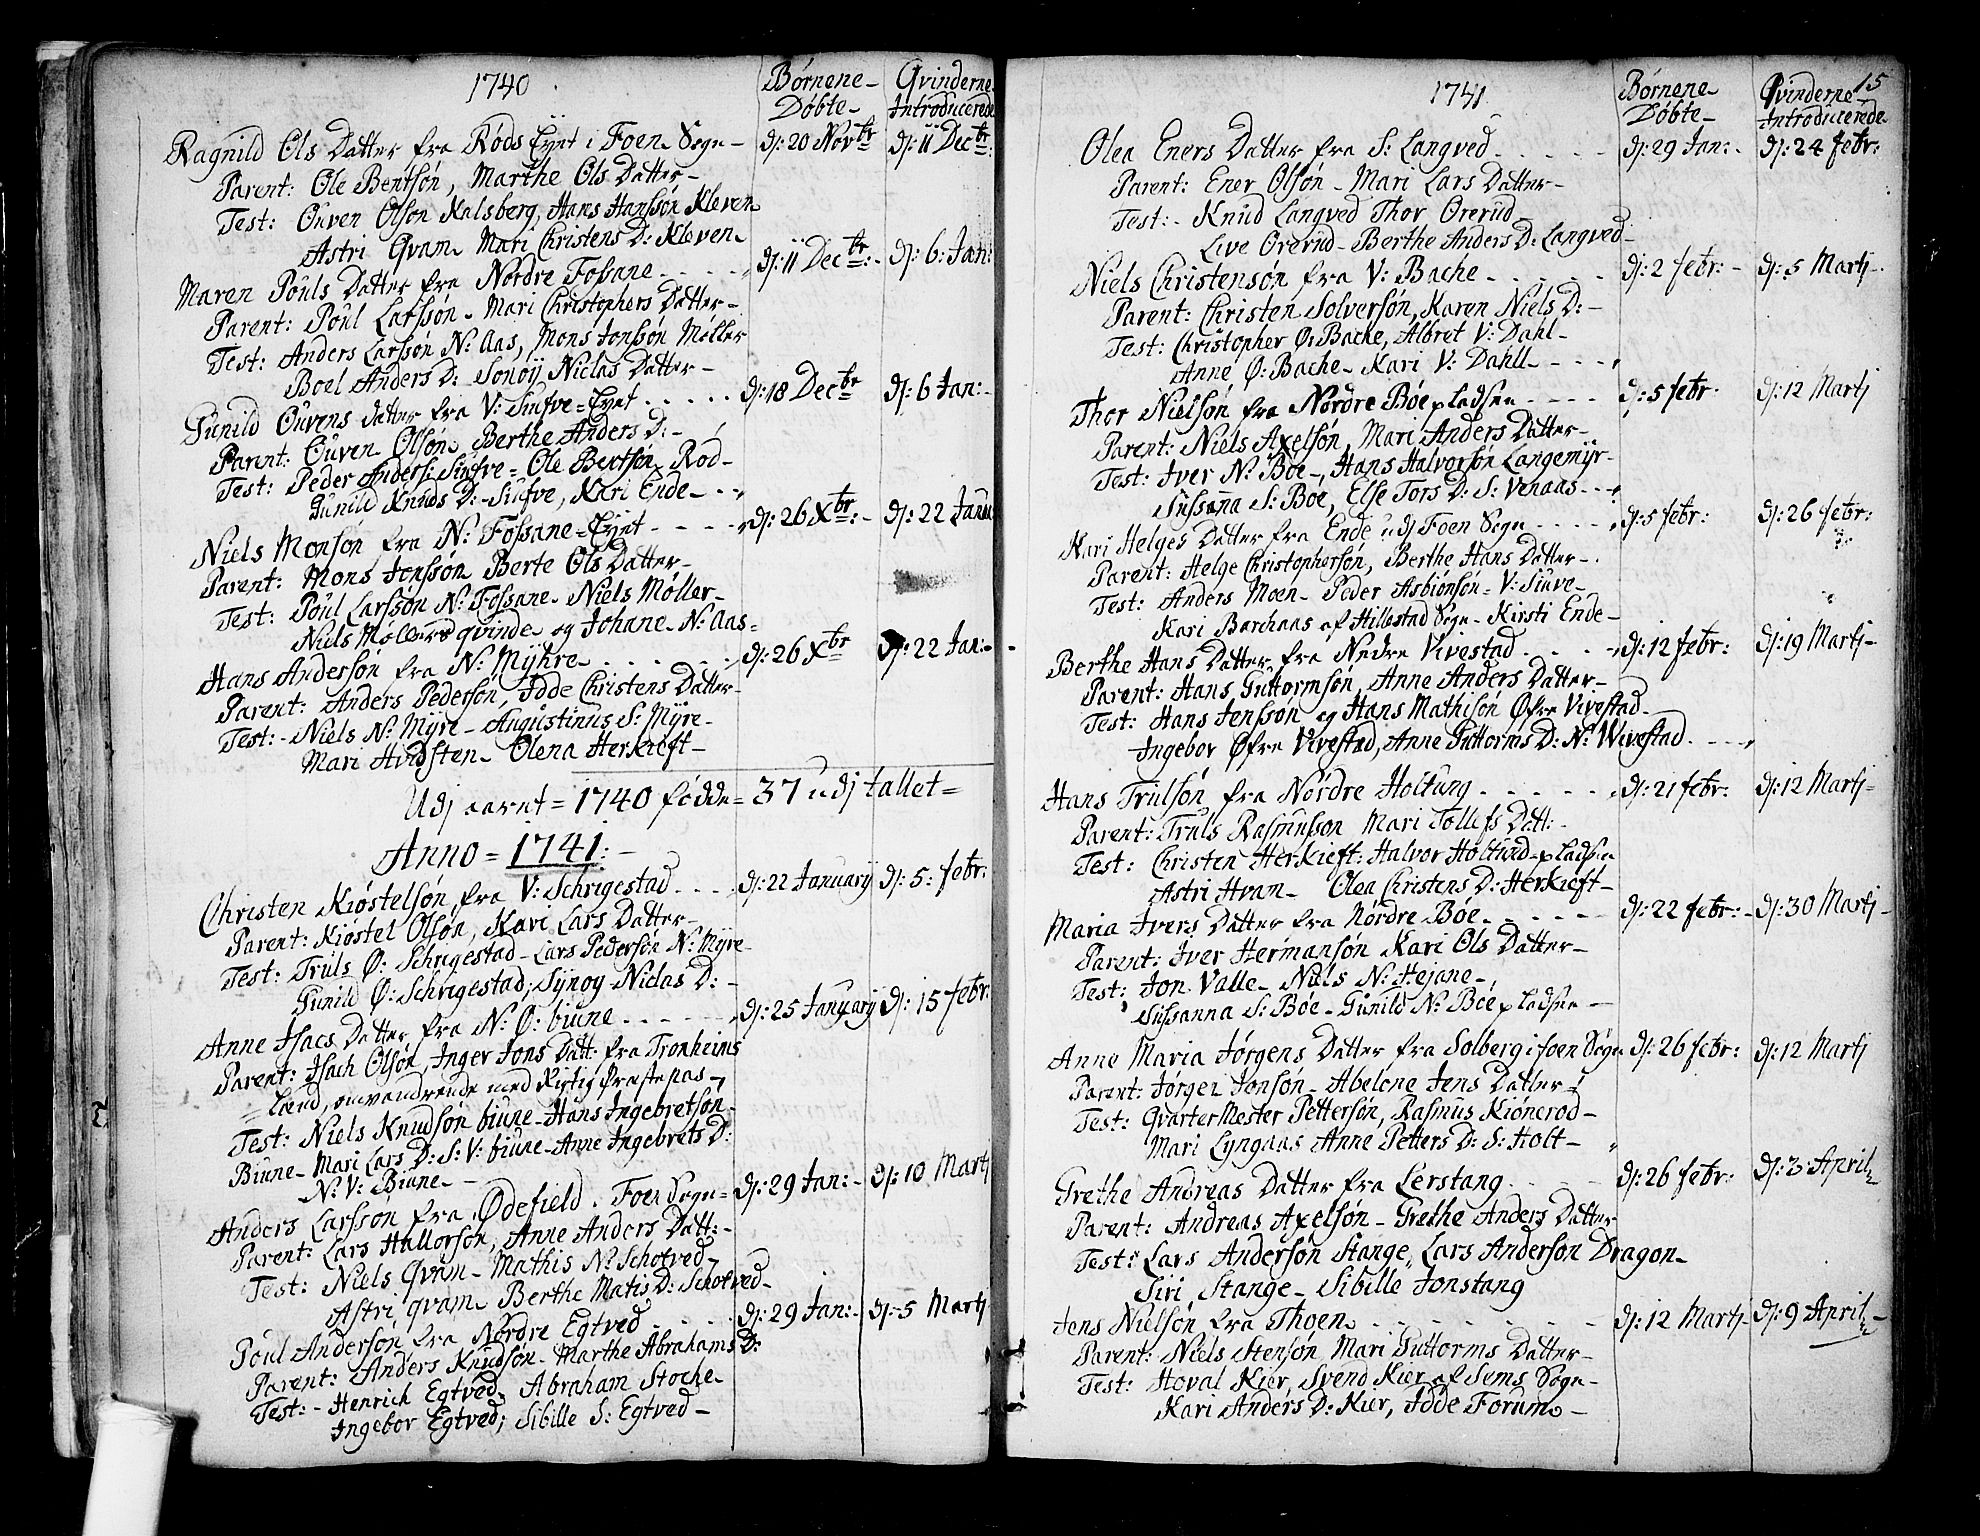 1740
Børnene Døbte
Qvinderne Introducerede
Ragnild Ols Datter fra Røds Eyet i Foen Sogn dj: 20 Novbr dj: 11 Decbr:
Parent: Ole Bentsøn, Marthe Ols Datter
Test: Ouven Olson Kalsberg, Hans Hanssøn Kleven
Astri Qvam Mari Christens D: Kleven
Maren Pouls Datter fra Nordre Fossane dj: 11 Decbr: dj: 6: Jan:
Parent: Poul Larssøn Mari Christophers Datter
Test: Anders Larssøn N: Aas, Mons Jonssøn Møller
Boel Anders D: Sonøy Niclas Datter
Gunild Ouvens Datter fra V: Siufve=Eyet dj: 18 Decbr dj: 6 Jan:
Parent: Ouven Olsøn Berthe Anders D:
Test: Peder Anders: Siufve= Ole Bertsøn Rød
Gunild Knuds D: Siufve, Kari Ende
Niels Monsøn fra N: Fossane=Eyet dj: 26 Xbr: dj: 22 Janu
Parent: Mons Jonssøn Berte Ols Datter
Test: Poul Larssøn N: Fossane Niels Møller
Niels Møllers qvinde og Johane N: Aas=
Hans Andersøn fra N: Myhre dj: 26 Xbr dj: 22 Jan:
Parent: Anders Pedersøn, Idde Christens Datter
Test: Niels N: Myre Augustinus S: Myre
Mari Hvidsten Olena Herkieft
Udj aaret = 1740 fødde = 37 udj tallet =
Anno = 1741:
Christen Kiøstelsøn, fra V: Schrigestad dj: 22 January dj: 5: febr:
Parent: Kiøstel Olsøn, Kari Lars Datter
Test: Truls Ø: Schrigestad Lars Pedersøn N: Myre
Gunild Ø: Schrigestad, Synog Niclas D:
Anne Isacs Datter fra N: Ø: biune dj: 25 January dj: 15 febr:
Parent: Isach Olsøn, Inger Jons Datt: fra Tronheims
Land, omvandrende med Rigtig Præste pas
Test: Niels Knudsøn biune Hans Ingebretsøn
Biune Mari Lars D: S: V: biune Anne Ingebrets D:
N: V: Biune
Anders Larsson fra Ødefield. Foen Sogn= dj: 29 Jan: dj: 10 Martj
Parent: Lars Hallorsøn, Anne Anders Datt:
Test: Niels Qvam Mathis N: Schotved
Astri qvam Berthe Matis D: Schotved
Poul Andersøn fra Nordre Egtved dj: 29 Jan: dj: 5 Martj
Parent: Anders Knudsøn Marthe Abrahams D:
Test: Henrich Egtved, Abraham Stoche
Ingebor Egtved, Sibille S: Egtved
1741
Børnene Døbte
Qvinderne Introducerede
15
Olea Eners Datter fra S: Langved dj: 29 Jan: dj: 24 febr:
Parent: Ener Olsøn Mari Lars Datter
Test: Knud Langved Thor Orerud
Live Orerud Berthe Anders D: Langved
Niels Christensøn fra V: Bache dj: 2 febr: dj: 5 Martj
Parent: Christen Solversøn, Karen Niels D:
Test: Christopher Ø: Bache, Albret V: Dahl
Anne Ø: Bache Kari V: Dahll
Thor Nielsøn fra Nordre Bøe pladsen dj: 5 febr: dj: 12 Martj
Parent: Niels Axelsøn, Mari Anders Datter
Test: Iver N: Bøe, Hans Halvorsøn Langemyr
Sussanna S: Bøe, Else Tors D: S: Venaas
Kari Helges Datter fra Ende udj Foen Sogn dj: 5 febr: dj: 26 febr:
Parent: Helge Christophersøn, Berthe Hans Datter
Test: Anders Moen Peder Asbiønsøn V: Siuve
Kari Barchaas af Hillestad Sogn Kirsti Ende
Berthe Hans Datter fra Nedre Vivestad dj: 12 febr: dj: 19 Martj
Parent: Hans Guttormsøn, Anne Anders Datter
Test: Hans Jenssøn og Hans Mathisøn Øfre Vivestad
Ingebor Øfre Vivestad, Anne Guttorms D: N: Wivestad
Hans Trulsøn fra Nordre Holtung dj: 21 febr: dj: 12 Martj
Parent: Truls Rasmusson Mari Tollefs Datt:
Test: Christen Herkieft: Halvor Holtund pladsen
Astri Hvam Olea Christens D: Herkieft
Maria Ivers Datter fra Nordre Bøe dj: 22 febr: dj: 30 Martj
Parent: Iver Hermansøn Kari Ols Datter
Test: Jon Valle Niels N: Hejane
Sussanna S: Bøe Gunild N: Bøe pladsen
Anne Maria Jørgens Datter fra Solberg i foen Sogn dj: 26 febr: dj: 12 Martj
Parent: Jørgen Jonsøn Abelone Jens Datter
Test: QvarterMester Pettersøn, Rasmus Kiønerød
Mari Lyngaas Anne Petters D: S: Holt
Grethe Andreas Datter fra Lerstang dj: 26 febr: dj: 3 April
Parent: Andreas Axelsøn Grethe Anders Datter
Test: Lars Andersøn Stange, Lars Andersøn Dragon
Siri Stange Sibille Jonstang
Jens Nielsøn fra Thoen dj: 12 Martj dj: 9 April
Parent: Niels Stensøn Mari Guttorms Datter
Test: Hoval Kier, Svend Kier af Sems Sogn
Kari Anders D: Kier, Idde Forum